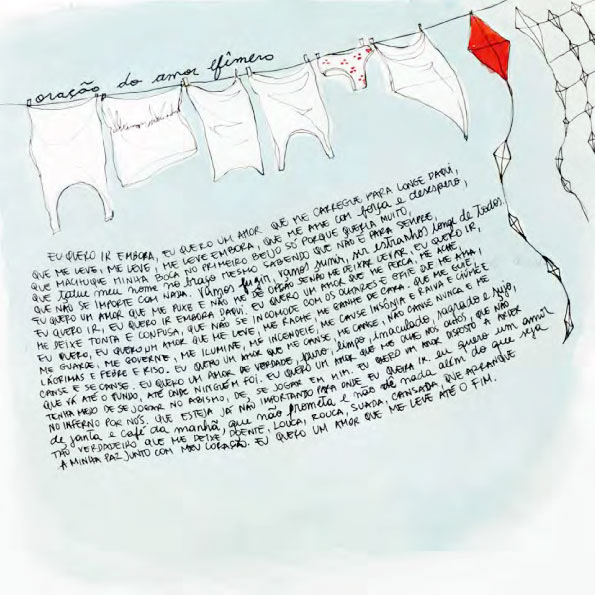 oração do amor efêmero
EU QUERO IR EMBORA, EU QUERO UM AMOR QUE ME CARREGUE PARA LONGE DAQUI,
QUE ME LEVE, ME LEVE, ME LEVE EMBORA, QUE ME AME COM força e desespero,
QUE MACHUQUE MINHA BOCA NO PRIMEIRO BEIJO SÓ PORQUE QUERIA MUITO,
QUE tatue meu nome no braço MESMO SABENDO QUE NÃO É PARA SEMPRE,
QUE NÃO SE IMPORTE COM NADA. Vamos fugir, vamos sumir, ser estranhos longe de todos.
EU QUERO UM AMOR QUE ME PUXE E NÃO ME DÊ OPÇÃO SENÃO ME DEIXAR LEVAR. EU QUERO IR,
EU QUERO IR, EU QUERO IR EMBORA DAQUI. EU QUERO UM AMOR QUE ME PERCA, ME ACHE,
ME DEIXE TONTA E CONFUSA, QUE NÃO SE INCOMODE COM OS OLHARES E GRITE QUE ME AMA;
EU QUERO, EU QUERO UM AMOR QUE ME LEVE, ME RACHE, ME GANHE DE CARA. QUE ME GUIE,
ME GUARDE, ME GOVERNE, ME ILUMINE, ME INCENDEIE, ME CAUSE INSÔNIA E RAIVA E CIÚME E
LÁGRIMAS E FEBRE E RISO. EU QUERO UM AMOR QUE ME CANSE, ME CANSE, NÃO CANSE NUNCA E ME
CANSE E SE CANSE. EU QUERO UM AMOR DE VERDADE, puro, limpo, imaculado, sagrado e sujo,
QUE VÁ ATÉ O FUNDO, ATÉ ONDE NINGUÉM FOI. EU QUERO UM AMOR QUE ME OLHE NOS OLHOS, QUE NÃO
TENHA MEDO DE SE JOGAR NO ABISMO, DE SE JOGAR EM MIM. EU QUERO UM AMOR DISPOSTO A ARDER
NO INFERNO POR NÓS. QUE ESTEJA JÁ NÃO IMPORTANDO PARA ONDE EU QUEIRA IR. eu quero um amor
de janta e café da manhã, que não prometa e não dê nada além do que seja
TÃO VERDADEIRO QUE ME DEIXE DOENTE, LOUCA, ROUCA, SUADA, CANSADA, QUE ARRANQUE
A MINHA PAZ JUNTO COM MEU CORAÇÃO. EU QUERO UM AMOR QUE ME LEVE ATÉ O FIM.